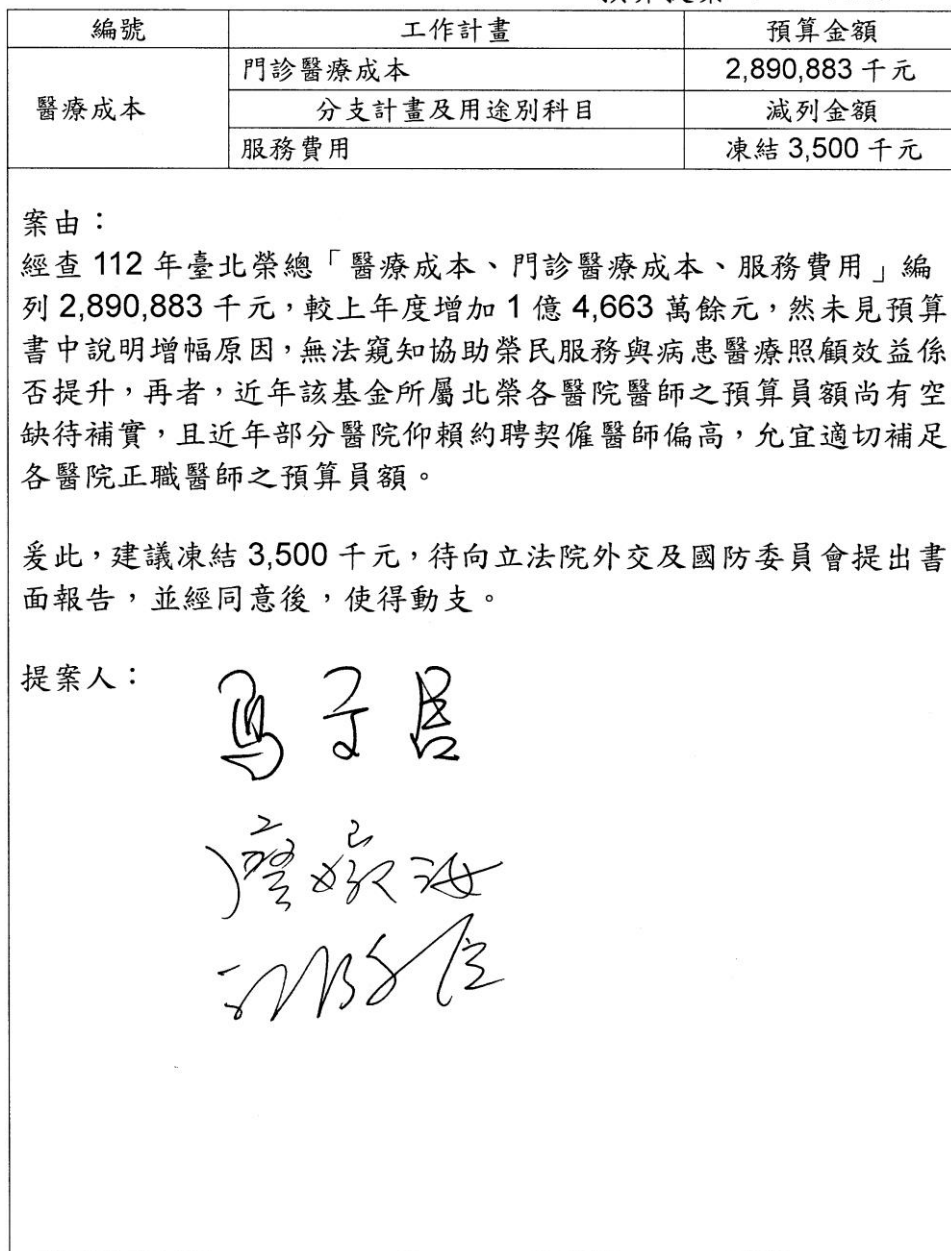 編號 工作計畫 預算金額
醫療成本 門診醫療成本 2,890,883 千元
分支計畫及用途別科目 減列金額
服務費用 凍結 3,500 千元
案由：
經查 112 年臺北榮總「醫療成本、門診醫療成本、服務費用」編
列 2,890,883 千元，較上年度增加 1 億 4,663 萬餘元，然未見預算
書中說明增幅原因，無法窺知協助榮民服務與病患醫療照顧效益係
否提升，再者，近年該基金所屬北榮各醫院醫師之預算員額尚有空
缺待補實，且近年部分醫院仰賴約聘契僱醫師偏高，允宜適切補足
各醫院正職醫師之預算員額。
爰此，建議凍結 3,500 千元，待向立法院外交及國防委員會提出書
面報告，並經同意後，使得動支。
提案人：